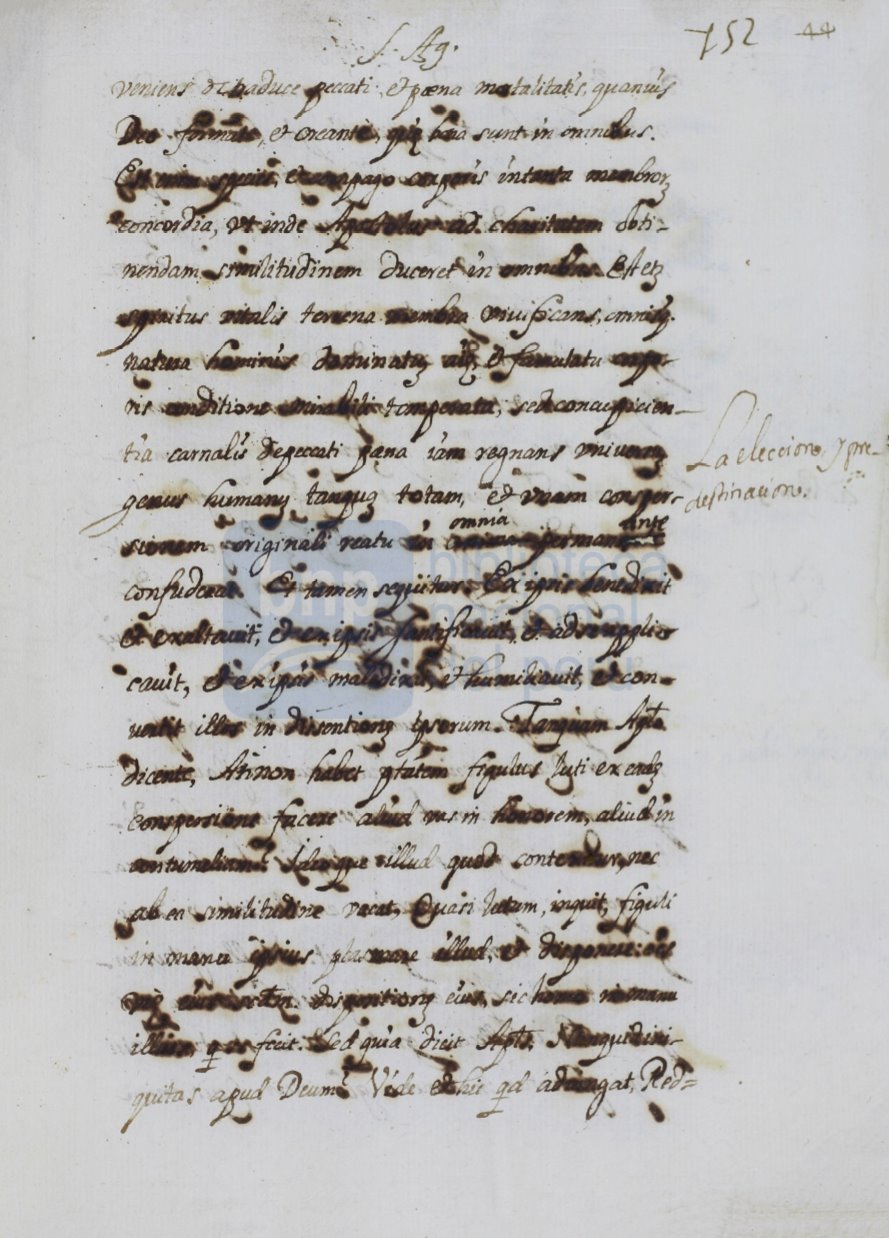 S. Ag.
752 44
veniens de traduce peccati, et pæna mortalitatis, quanuis
Deo formate, et creante, quę bona sunt in omnibus.
Est enim species, et compago corporis in tanta membror
concordia, vt inde Apostolus ad charitatem obti-
nendam similitudinem duceret in omnibus. Est et
spiritus vitalis terrena membra viuificans, omnisq.
natura hominis et famulatu corpo-
ris conditione mirabili temperata, sed concupiscen-
tia carnalis de peccati pæna iam regnans vniversũ
genus humanũ tanquã totam, et vnam consper-
sionem originali reatu in omnia permanente
confuderat. Et tamen sequitur. Ex ipsis benedixit
et exaltauit, et ex ipsis santificauit, et ad se applic
cauit, et ex ipsis maledixit, et humiliauit, et con-
vertit illos in dissentionẽ ipsorum. Tanquam Aplo
dicente, At non habet ptatem figulus luti ex eadẽ
conspersione facere aliud vas in honorem, aliud in
contumeliam? Ideoque illud quod contexitur, nec
ab ea similitudine vacat, Quasi lutum, inquit, figuli
in manu ipsius plasmare illud, et disponere: oẽs
vię eius sectm dispositionẽ eius, sic homo in manu
illius, q se fecit. Sed quia dicit Apts. Nunquid ini-
quitas apud Deum? Vide et hic qd adiungat, Red=
La eleccion, y pre-
destinacion.